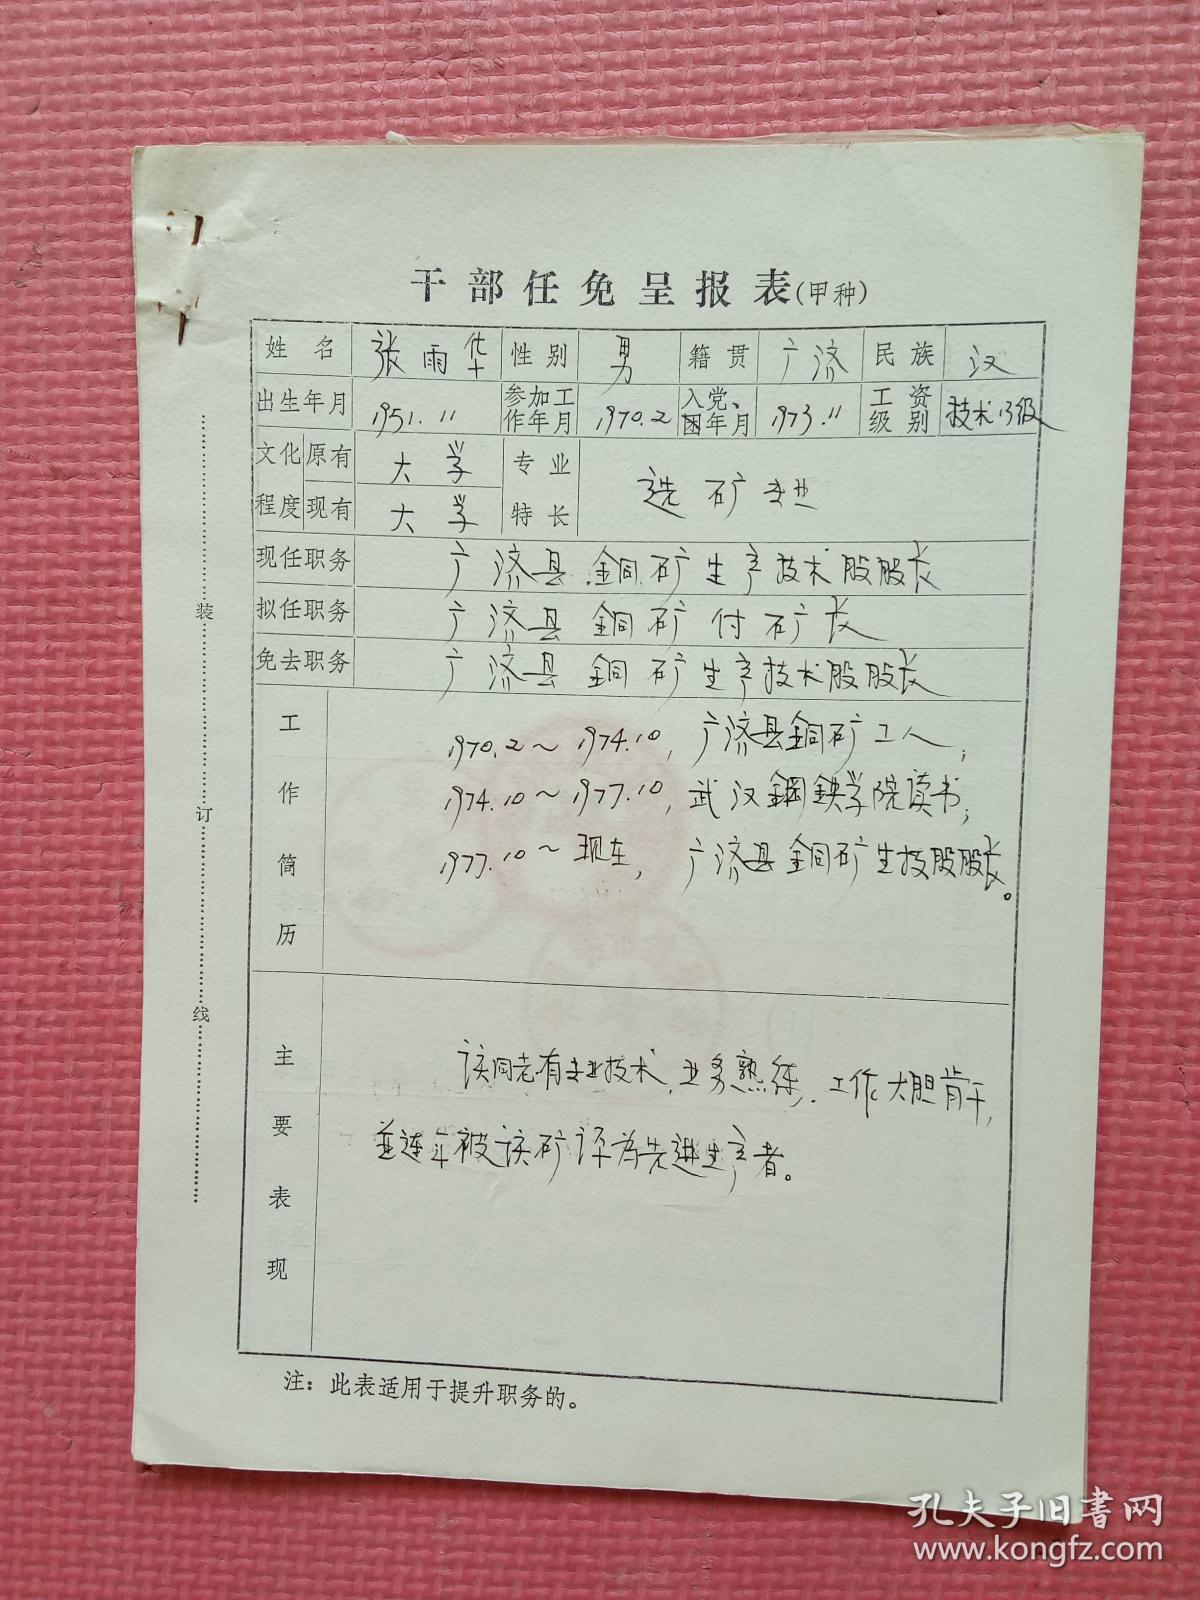 干部任免呈报表(甲种)
姓名 张雨华 性别 男 籍贯 广济 民族 汉
出生年月 1951.11 参加工作年月 1970.2 入党、团年月 1973.11 工资级别 技术13级
文化程度 原有 大学 专业特长 选矿专业
现有 大学
现任职务 广济县銅矿生产技术股股长
拟任职务 广济县銅矿付矿长
免去职务 广济县銅矿生产技术股股长
工作简历
1970.2~1974.10,广济县銅矿工人;
1974.10~1977.10,武汉鋼鉄学院读书;
1977.10~现在,广济县銅矿生技股股长。
主要表现
该同志有专业技术,业务熟练,工作大胆肯干,
並连年被该矿评为先进生产者。
注:此表适用于提升职务的。
装订线
孔夫子旧书网
www.kongfz.com